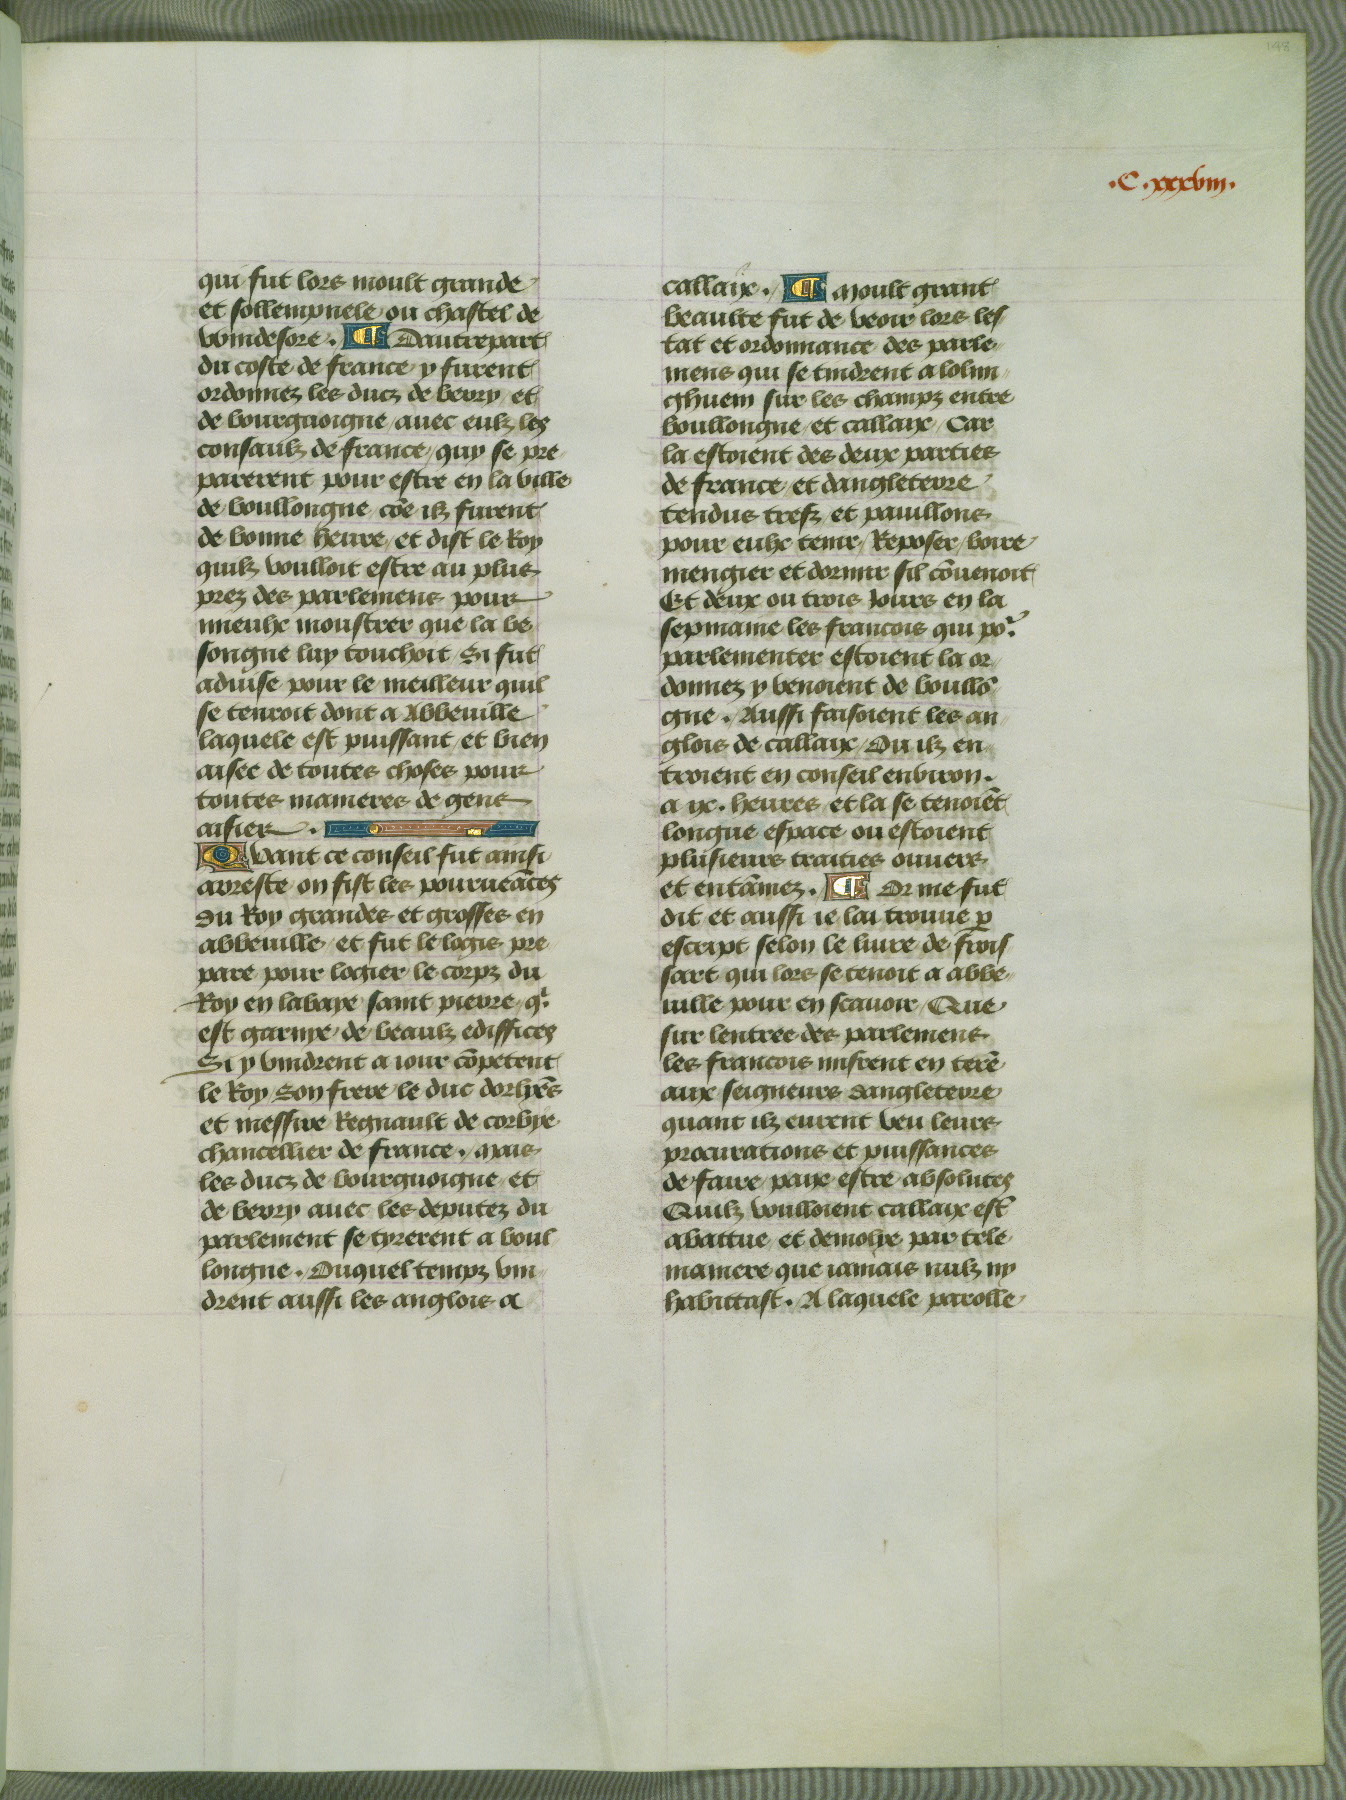 .C.xxxviii.
qui fut lors moult grande
et sollempnele ou chastel de
windesore. ¶ Dautrepart
du coste de france y furent
ordonnez les ducz de berry et
de bourguoigne auec eulz les
consaulz de france quy se pre
parerent pour estre en la ville
de boullongne cõe ilz furent
de bonne heure et dist le Roy
quilz voulloit estre au plus
prez des parlemens pour
mieulx monstrer que la be
songne luy touchoit Si fut
aduise pour le meilleur quil
se tenroit dont a Abbeuille
laquele est puissant et bien
aisee de toutes choses pour
toutes manieres de gens
aisier.
Quant ce conseil fut ainsi
arreste on fist les pourueãces
du Roy grandes et grosses en
abbeuille et fut le logis pre
pare pour logier le corpz du
Roy en labaye saint pierre q̃
est garnye de beaulz ediffices
Si y vindrent a iour cõpetent
le Roy Son frere le duc dorlyẽs
et messire Regnault de corbye
chancellier de france. Mais
les ducz de bourguoigne et
de berry auec les deputez du
parlement se tyrerent a boul
longne. Duquel tempz vin
drent aussi les anglois a
callaix. ¶ Moult grant
beaulte fut de veoir lors les
tat et ordonnance des parle
mens qui se tindrent a lolin
ghuem sur les champz entre
boullongne et callaix Car
la estoient des deux parties
de france et dangleterre
tendus trefz et pauillons
pour eulx tenir Reposer boire
mengier et dormir sil cõuenoit
Et deux ou trois Jours en la
sepmaine les francois qui po᷑
parlementer estoient la or
donnez y venoient de boullõ
gne. Aussi faisoient les an
glois de callaix Ou ilz en
troient en conseil enuiron.
a ix. heures et la se tenoiẽt
longue espace ou estoient
plusieurs traities ouuers
et entãmez. ¶ Or me fut
dit et aussi ie lai trouue ꝑ
escript selon le liure de frois
sart qui lors se tenoit a abbe
uille pour en scauoir Que
sur lentree des parlemens
les francois misrent en terẽ
aux seigneurs dangleterre
quant ilz eurent veu leurs
procurations et puissances
de faire paix estre absolutes
Quilz voulloient callaix est̃
abattue et demolye par tele
maniere que iamais nulz ny
habittast. A laquele parolle